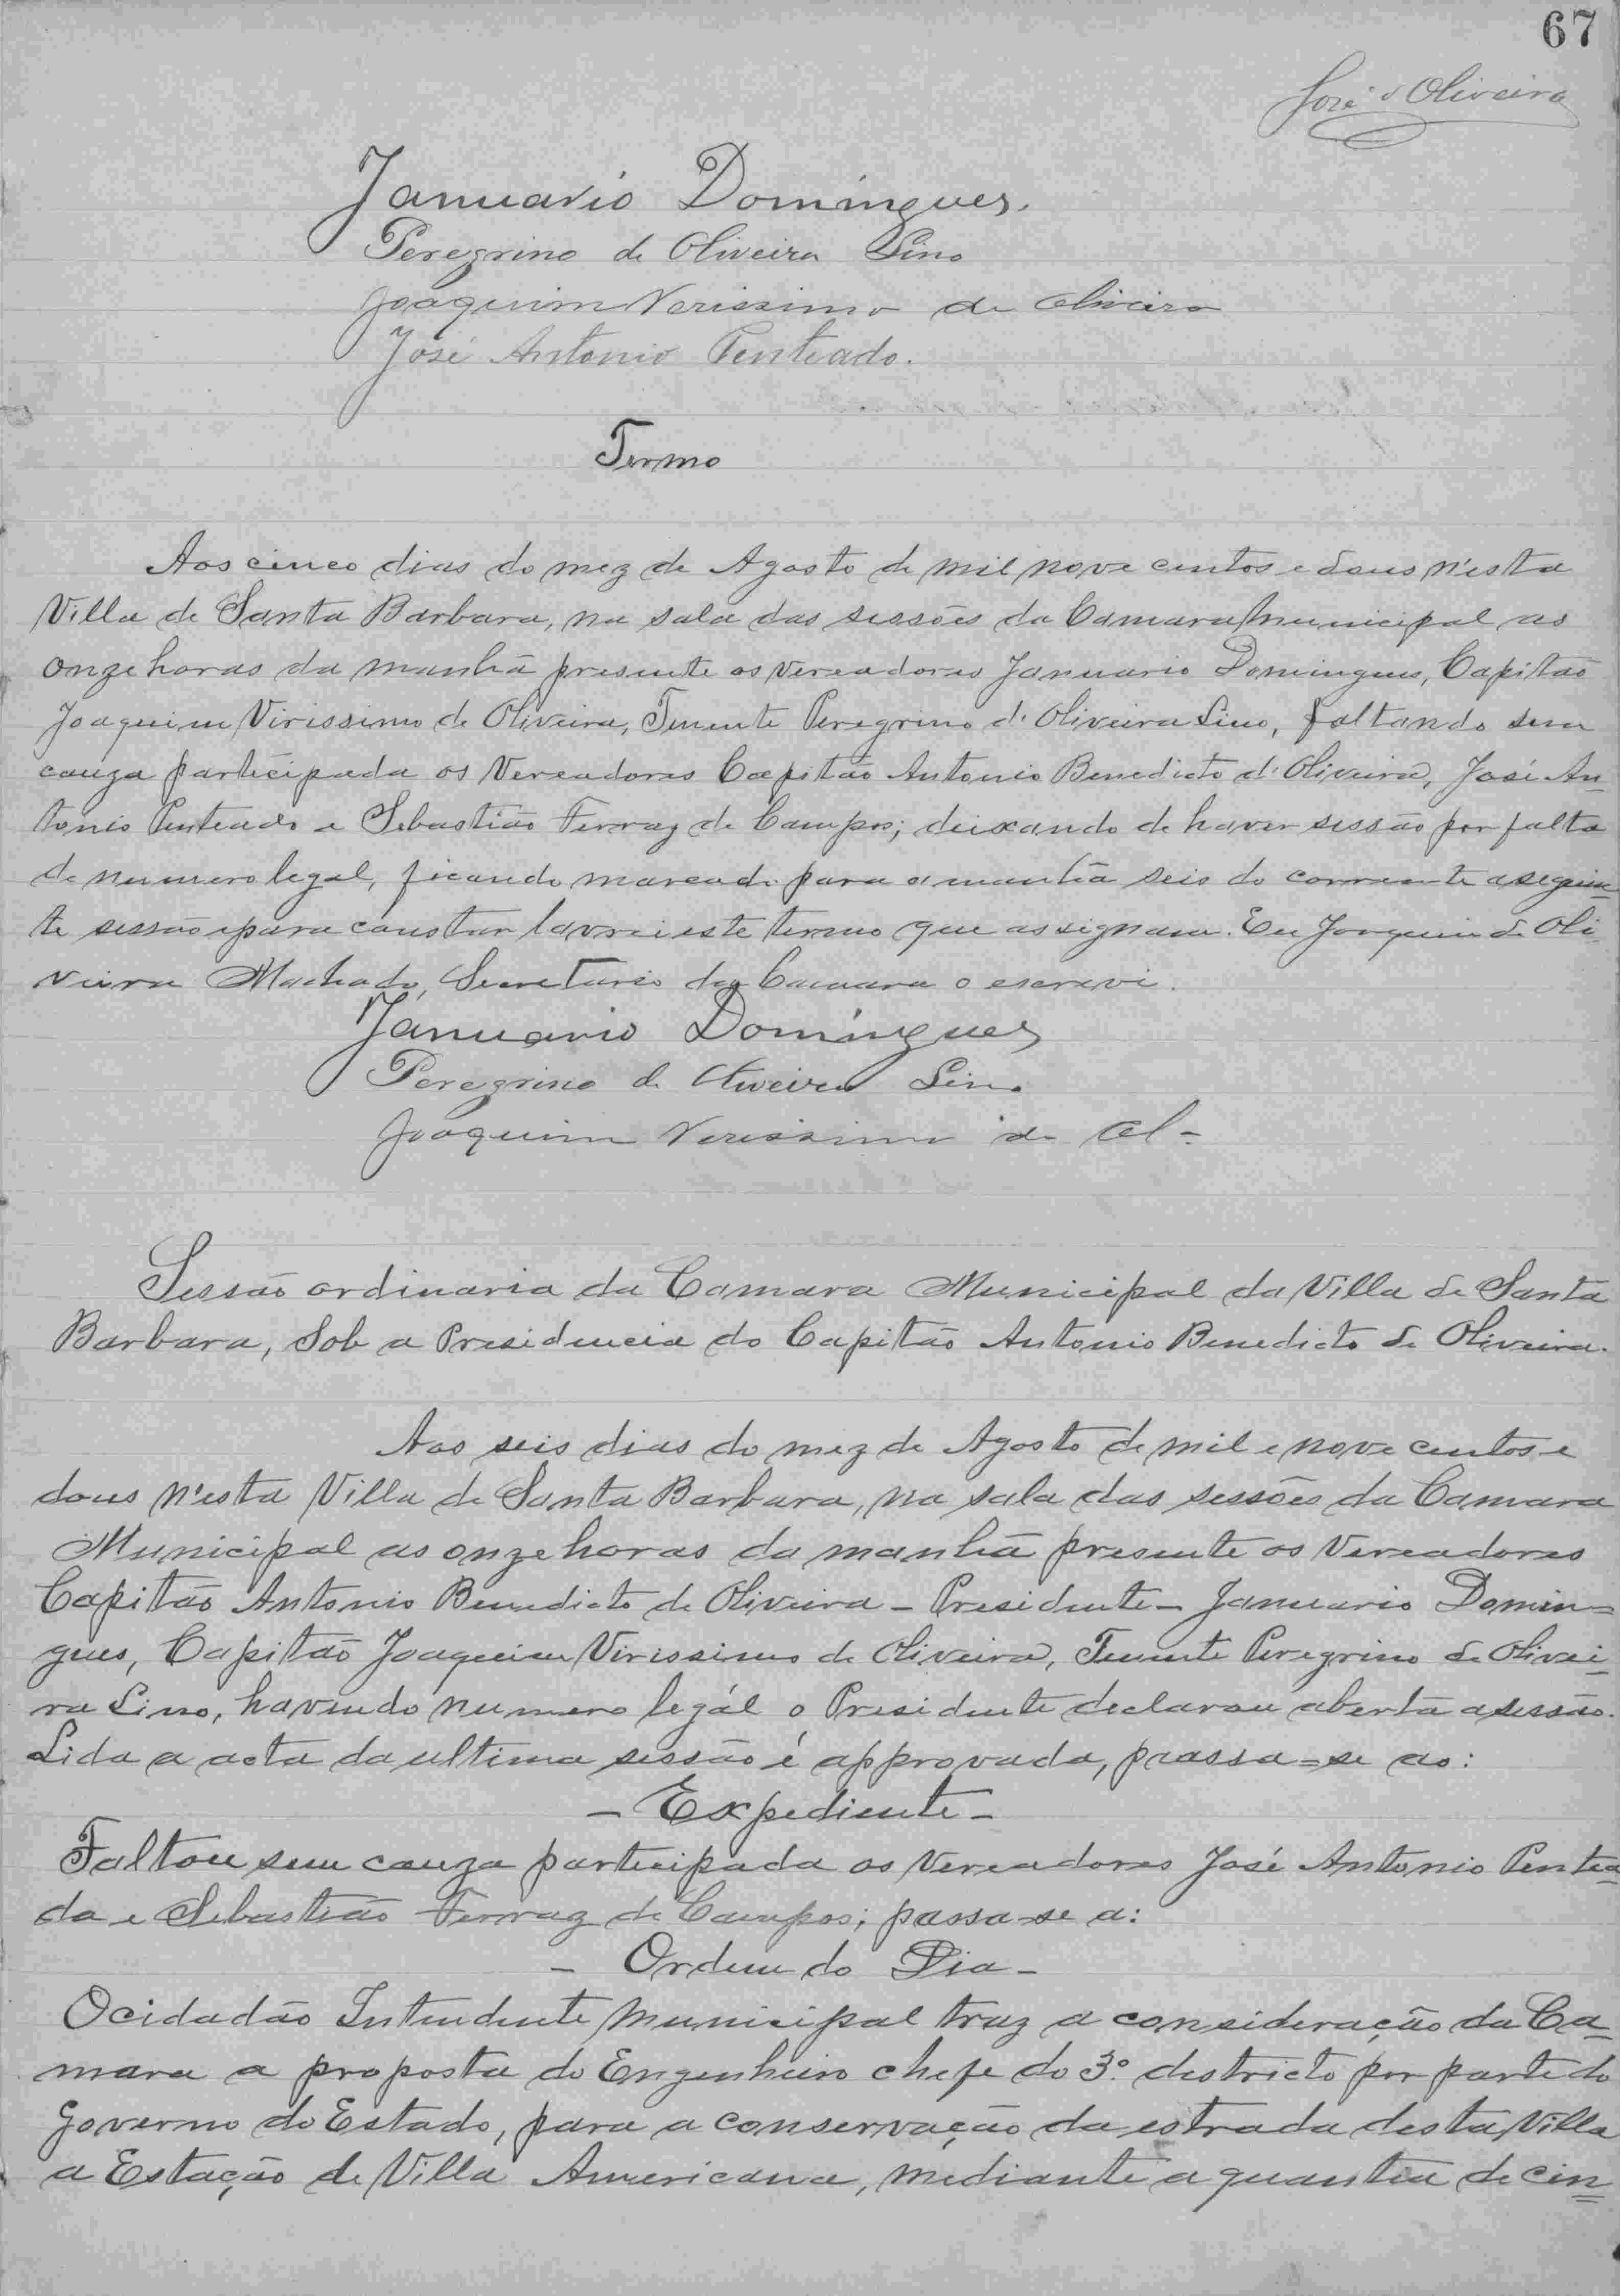 67
José d'Oliveira
Januario Domingues.
Peregrino de Oliveira Lino
Joaquim Verissimo de Oliveira
José Antonio Penteado.
Termo
Aos cinco dias do mez de Agosto de mil nove centos e dous n'esta
Villa de Santa Barbara, na sala das sessões da Camara Municipal as
onze horas da manhã presente os vereadores Januario Domingues, Capitão
Joaquim Virissimo de Oliveira, Tenente Peregrino d'Oliveira Lino, faltando sem
cauza participada os Vereadores Capitão Antonio Benedicto d'Oliveira, José An=
tonio Penteado e Sebastião Ferraz de Campos; deixando de haver sessão por falta
de numero legal, ficando marcado para amanhã seis do corrente a seguin=
te sessão e para constar lavrei este termo que assignam. Eu Joaquim de Oli=
veira Machado, Secretario da Camara o escrevi.
Januario Domingues
Peregrino de Oliveira Lino
Joaquim Verissimo de Ol-
Sessão ordinaria da Camara Municipal da Villa de Santa
Barbara, Sob a Presidencia do Capitão Antonio Benedicto de Oliveira.
Aos seis dias do mez de Agosto de mil e nove centos e
dous n'esta Villa de Santa Barbara, na sala das sessões da Camara
Municipal as onze horas da manhã presente os Vereadores
Capitão Antonio Benedicto de Oliveira - Presidente - Januario Domin=
gues, Capitão Joaquim Virissimo de Oliveira, Tenente Peregrino de Olivei=
ra Lino, havendo numero legál o Presidente declarou aberta a sessão.
Lida a acta da ultima sessão é approvada, passa=se ao:
- Expediente -
Faltou sem cauza participada os Vereadores José Antonio Pentea=
do e Sebastião Ferraz de Campos; passa-se a:
- Ordem do Dia -
O cidadão Intendente Municipal traz a consideração da Ca=
mara a proposta do Engenheiro chefe do 3º districto por parte do
Governo do Estado, para a conservação da estrada desta Villa
a Estação de Villa Americana, mediante a quantia de cin=